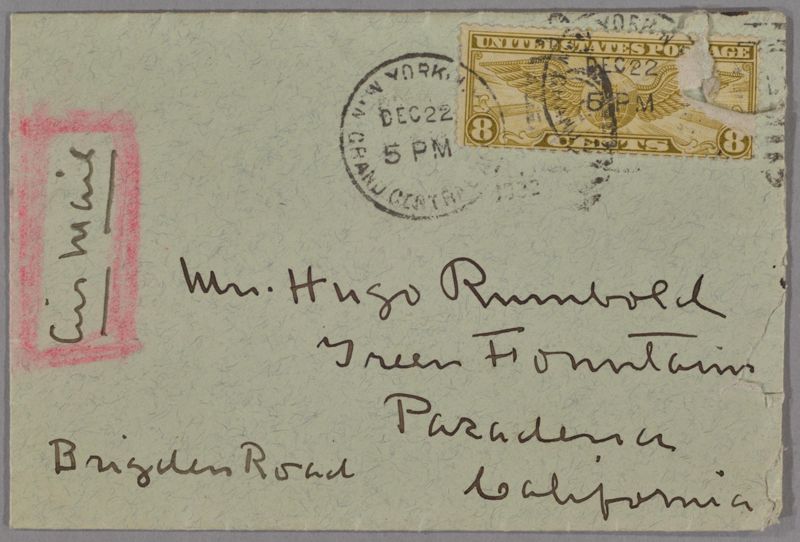 NEW YORK, N.
DEC 22
5 PM
GRAND CENTRAL
1932
NEW YORK, N.
DEC 22
5 PM
UNITED STATES POSTAGE
8 CENTS 8
Air Mail
Mr. Hugo Rumbold
Green Fountains
Pasadena
Brigden Road
California